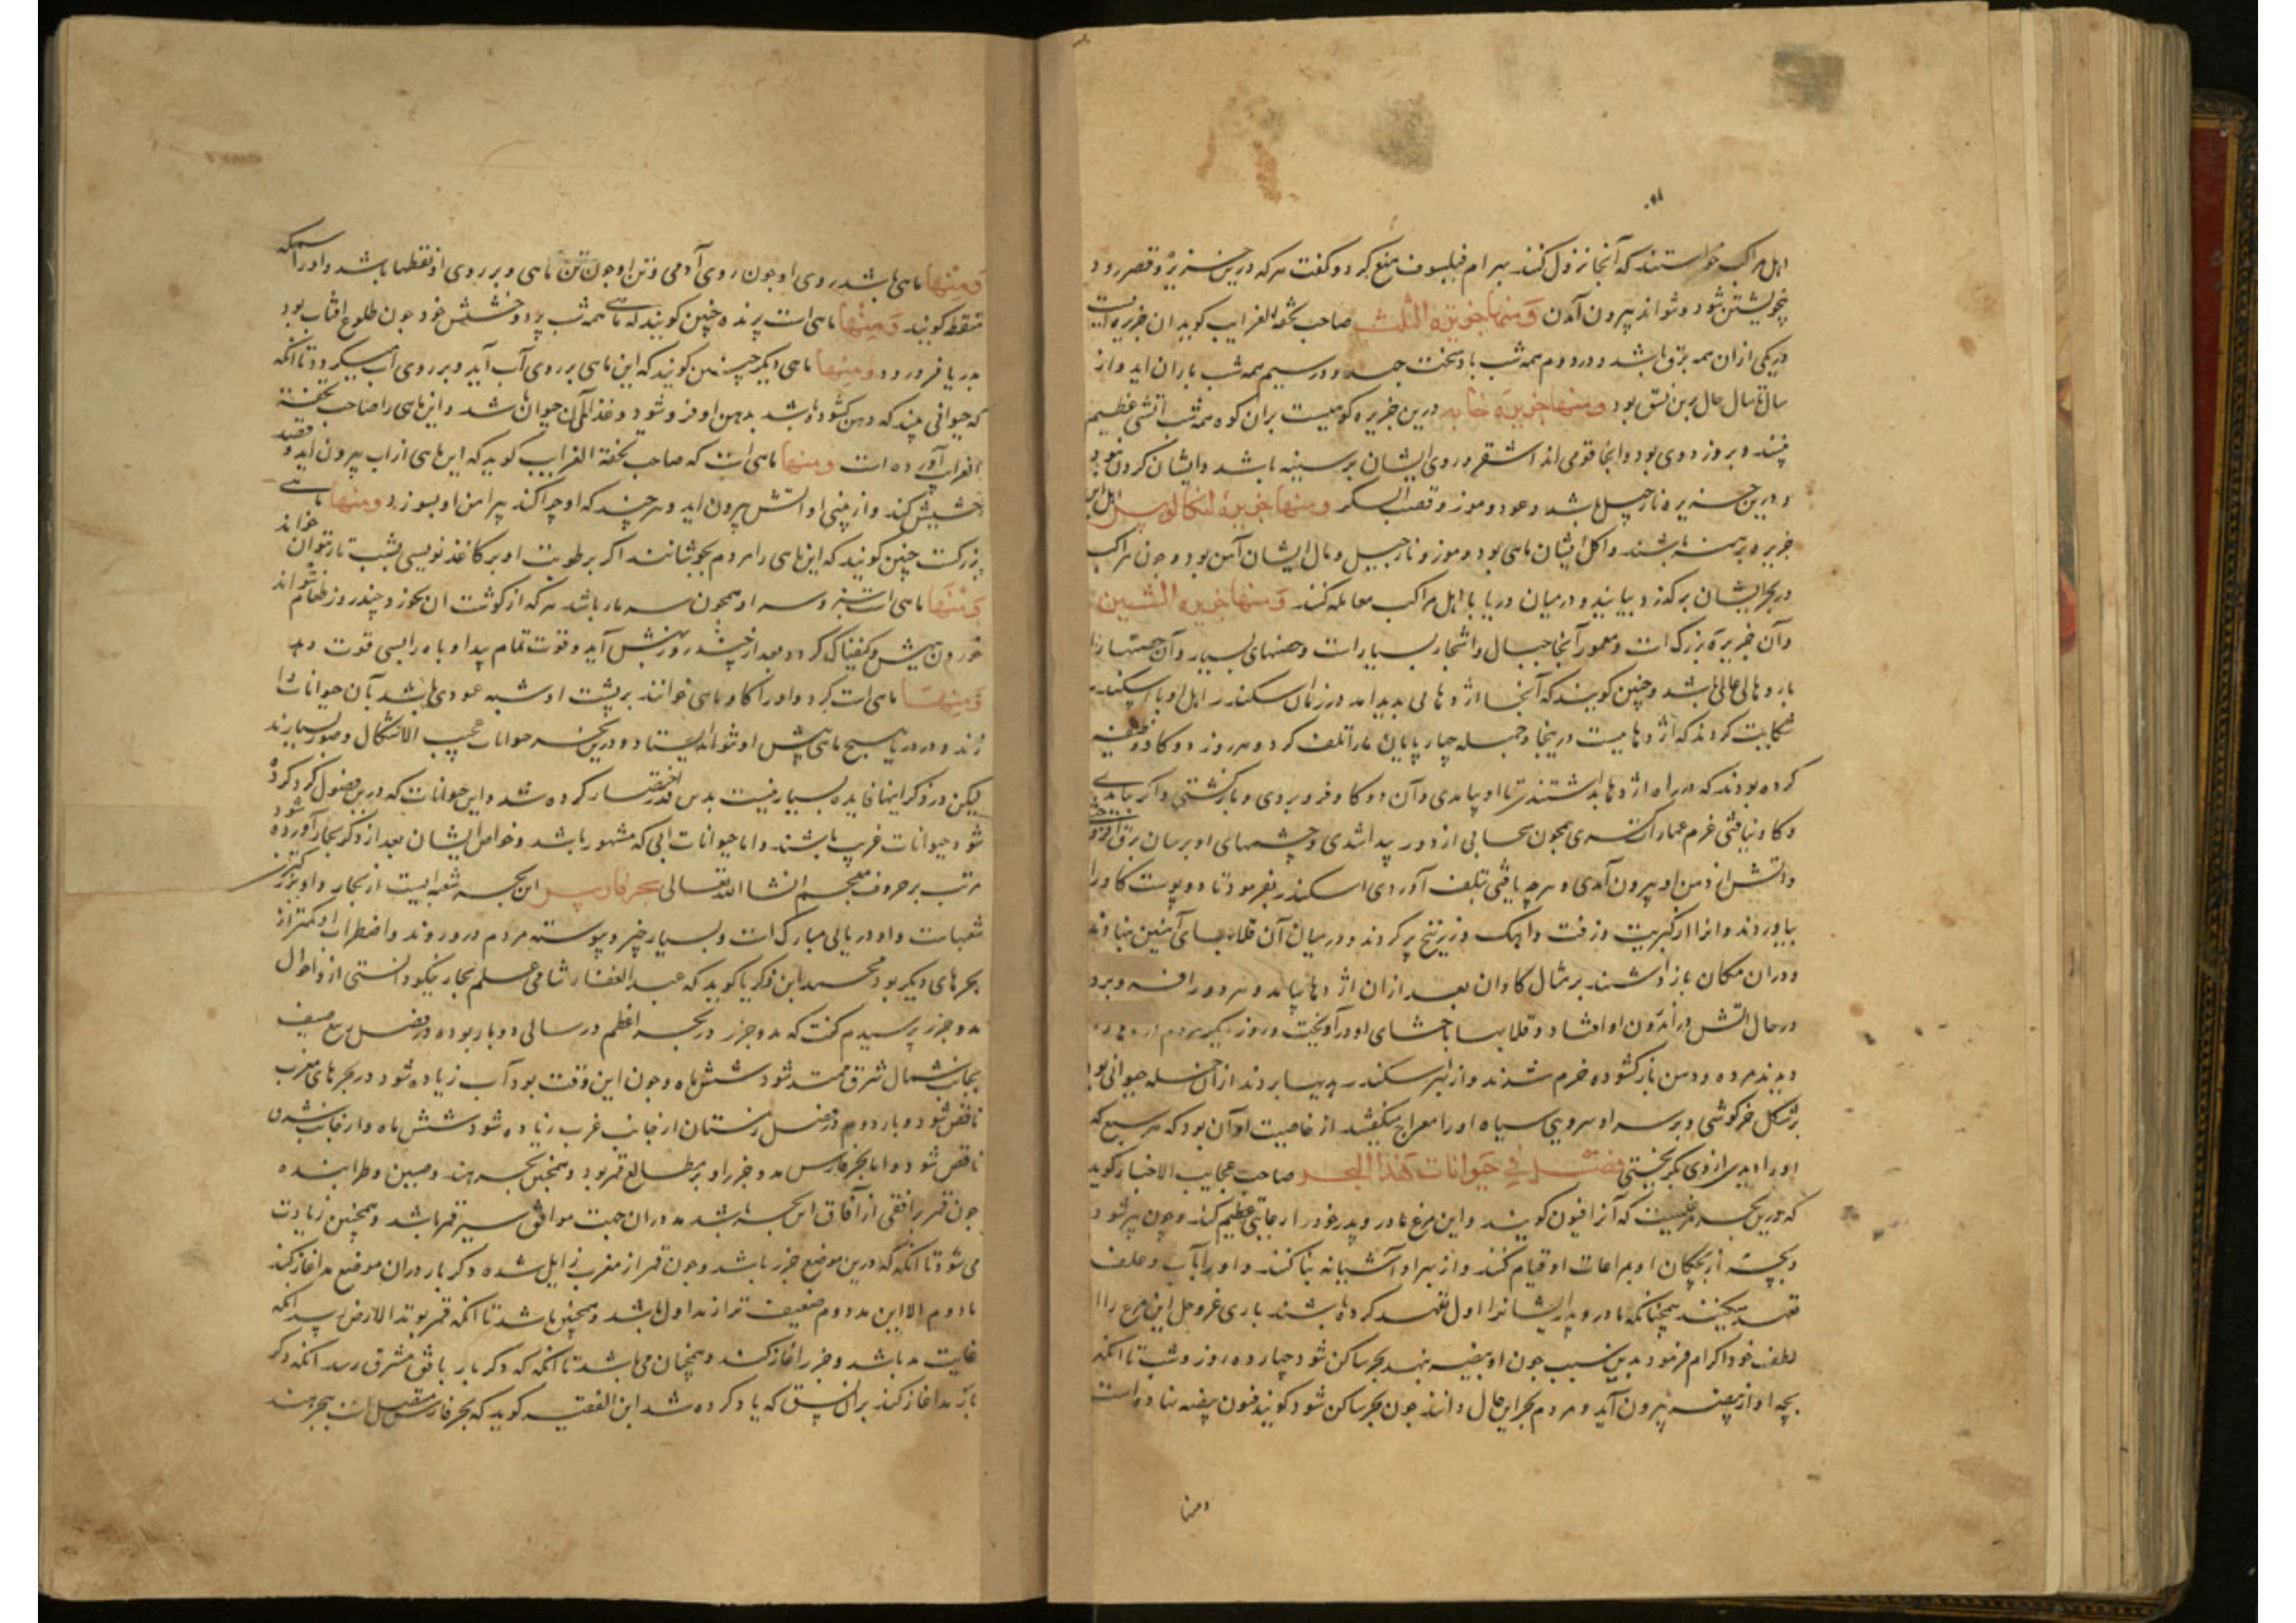 اهل مراکب خواستند که آنجا نزول کنند بهرام فیلسوف منع کرد و گفت هر که درین جزیره و قصر رود
بخویشتن شود و نتواند بیرون آمدن ومنها جزیرة الثلث صاحب تحفه الغرایب کوید این جزیره ایست
در یکی از ان همه برق باشد و در دوم همه شب باد سخت جهد و در سیم همه شب باران اید و از
سال تا سال حال برین نسق بود ومنها جزیره جابه درین جزیره کوهیست بران کوه همه شب آتشی عظیم
بینند و بروز دودی بود و آنجا قومی اند اشقر و روی ایشان بر سینه باشد و ایشان
و درین جزیره نارجیل باشد و عود و موز و قصب السکر ومنها جزیره لنکالوس اهل این
جزیره برهنه باشند و اکل ایشان ماهی بود و موز و نارجیل و مال ایشان آهن بود و چون مراکب
در بحر ایشان برکذرد بیایند و درمیان دریا با اهل مراکب معامله کنند ومنها جزیره التنین
وآن جزیرۀ بزرک است ومعمور آنجا جبال و اشجار بسیار است وحصنهای بسیار وآن حصنها را
بارو های عالی باشد و چنین کویند که آنجا اژدهایی بدید امد در زمان سکندر اهل او با سکندر
شکایت کردند که اژدهاییست درینجا وجمله چهارپایان مارا تلف کرد و هر روز دو کاو وظیفه
کرده بودند که در راه اژدها بداشتند تا او بیامدی وآن دو کاو فرو بردی و بازکشتی واکر بیامدی
و کاو نیافتی عزم عمارات کردی همچون سحابی از دور پیدا شدی و چشمهای او برسان برق
و اتش از دهن او بیرون آمدی و هرچه یافتی تلف آوردی اسکندر بفرمود تا دو پوست کاو را
بیاوردند وانرا از کبریت وزفت واهک وزرنیخ پر کردند و درمیان آن قلابهای آهنین نهادند
ودران مکان بازداشتند برمثال کاوان بعد ازان اژدها بیامد و هر دو را فرو برد
درحال اتش در اندرون او افتاد و قلابها باحشای او درآویخت و روز دیکر مردم
دیدند مرده و دهن بازکشوده خرم شدند واز بهر سکندر هدیها بردند ازجمله حیوانی بود
برشکل خرکوشی و برسر او سرویی سیاه اورا معراج میکفتند از خاصیت او آن بود که هر سبع که
اورا بدیدی ازوی بکریختی فصل في حیوانات هذا البحر صاحب عجایب الاخبار کوید
که درین بحر مرغیست که آنرا فیون کویند واین مرغ مادر و پدر خود را رعایتی عظیم کند و چون پیر شود
دو بچه از بچکان او بمراعات او قیام کنند واز بهر او آشیانه بنا کنند واورا بآب وعلف
تعهد میکنند همچنانکه مادر و پدر ایشانرا اول تعهد کرده باشند باری عزوجل این مرغ را از
لطف خود اکرام فرمود بدین سبب چون او بیضه بنهد بحر ساکن شود چهارده روز وشب تا انکه
بچه او از بیضه بیرون آید و مردم بحر این حال دانند چون بحر ساکن شود کویند فیون بیضه نهاده است
ومنها
ومنها ماهی باشد روی او چون روی آدمی و تن او چون تن ماهی و بر روی او نقطها باشد و اورا سمکه
منقط کویند ومنها ماهی است پرنده چنین کویند که ماهی همه شب برود وچون طلوع افتاب بود
بدریا فرو رود ومنها ماهی دیکر چنین کویند که این ماهی بر روی آب آید و بر روی آب میکردد تا انکه
که حیوانی بیند که دهن کشوده باشد بدهن او فرو شود و غذا آن حیوان باشد واین ماهی را صاحب تحفة
الغرایب آورده است ومنها ماهی است که صاحب تحفة الغرایب کوید که این ماهی از اب بیرون اید و قصد
حشیش کند واز بینی او اتش بیرون اید و هرچند که او چرا کند پیرامن او بسوزد ومنها ماهی
بزرکست چنین کویند که این ماهی را مردم بجوشانند اکر برطوبت او بر کاغذ نویسی بشب تار توان خواند
ومنها ماهی است سبز و سر او همچون سر مار باشد هر که از کوشت ان بخورد چند روز طعام نتواند
خوردن بعد از چند روز آید و قوت تمام
ومنها ماهی است کرد و اورا کاو ماهی خوانند بر پشت او شبه عمودی باشد بآن حیوانات را
زند و در دریا هیچ ماهی پیش او نتواند ایستاد و درین بحر حیوانات عجیب الاشکال وصور بسیارند
لیکن در ذکر اینها فایده بسیار نیست بدین قدر اختصار کرده شد واین حیوانات که درین فصول ذکر کرده
شود حیوانات غریب باشند واما حیوانات آبی که مشهور باشد وخواص ایشان بعد از ذکر بحار آورده شود
مرتب بر حروف معجم انشا الله تعالی بحر فارس این بحر شعبه ایست از بحار واو بزرکترین
شعبات واو دریایی مبارک است و بسیار خیر و پیوسته مردم درو روند واضطراب او کمتر از
بحرهای دیکر بود محمد ابن زکریا کوید که عبدالغفار شامی علم بحار نیکو دانستی ازو احوال
مد وجزر پرسیدم کفت که مد وجزر در بحر اعظم در سالی دو بار بود در فصل ربیع وصیف
بجانب شمال شرق ممتد شود شش ماه وچون این وقت بود آب زیاده شود در بحرهای مغرب
ناقص شود و بار دوم در فصل زمستان از جانب غرب زیاده شود شش ماه واز جانب شرق
ناقص شود واما بحر فارس مد وجزر او بر مطالع قمر بود وهمچنین بحر هند وصین وطرابنده
چون قمر برافقی از آفاق این بحر باشد مد دران جهت موافق سیر قمر باشد وهمچنین زیادت
می شود تا انکه که درین موضع جزر باشد و چون قمر از مغرب زایل شده دکر بار دران موضع مد اغاز کند
مد دوم الا این مد دوم ضعیف تر از مد اول باشد وهمچنین باشد تا انکه قمر بوتد الارض رسد انکه
غایت مد باشد وجزر اغاز کند وهمچنان می باشد تا انکه که دکر بار بافق مشرق رسد انکه دکر
باز مد اغاز کند بران نسق که یاد کرده شد ابن الفقیه کوید که بحر فارس متصل است ببحر هند